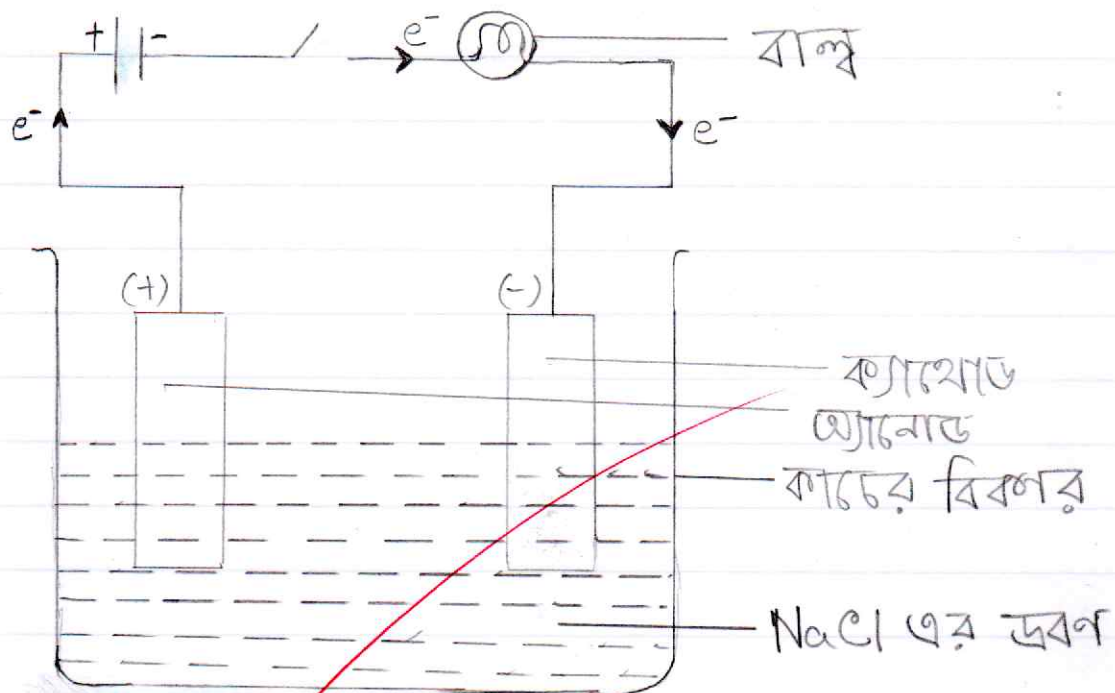 + -
e⁻
বাল্ব
e⁻
e⁻
(+)
(-)
ক্যাথোড
অ্যানোড
কাচের বিকার
NaCl এর দ্রবণ